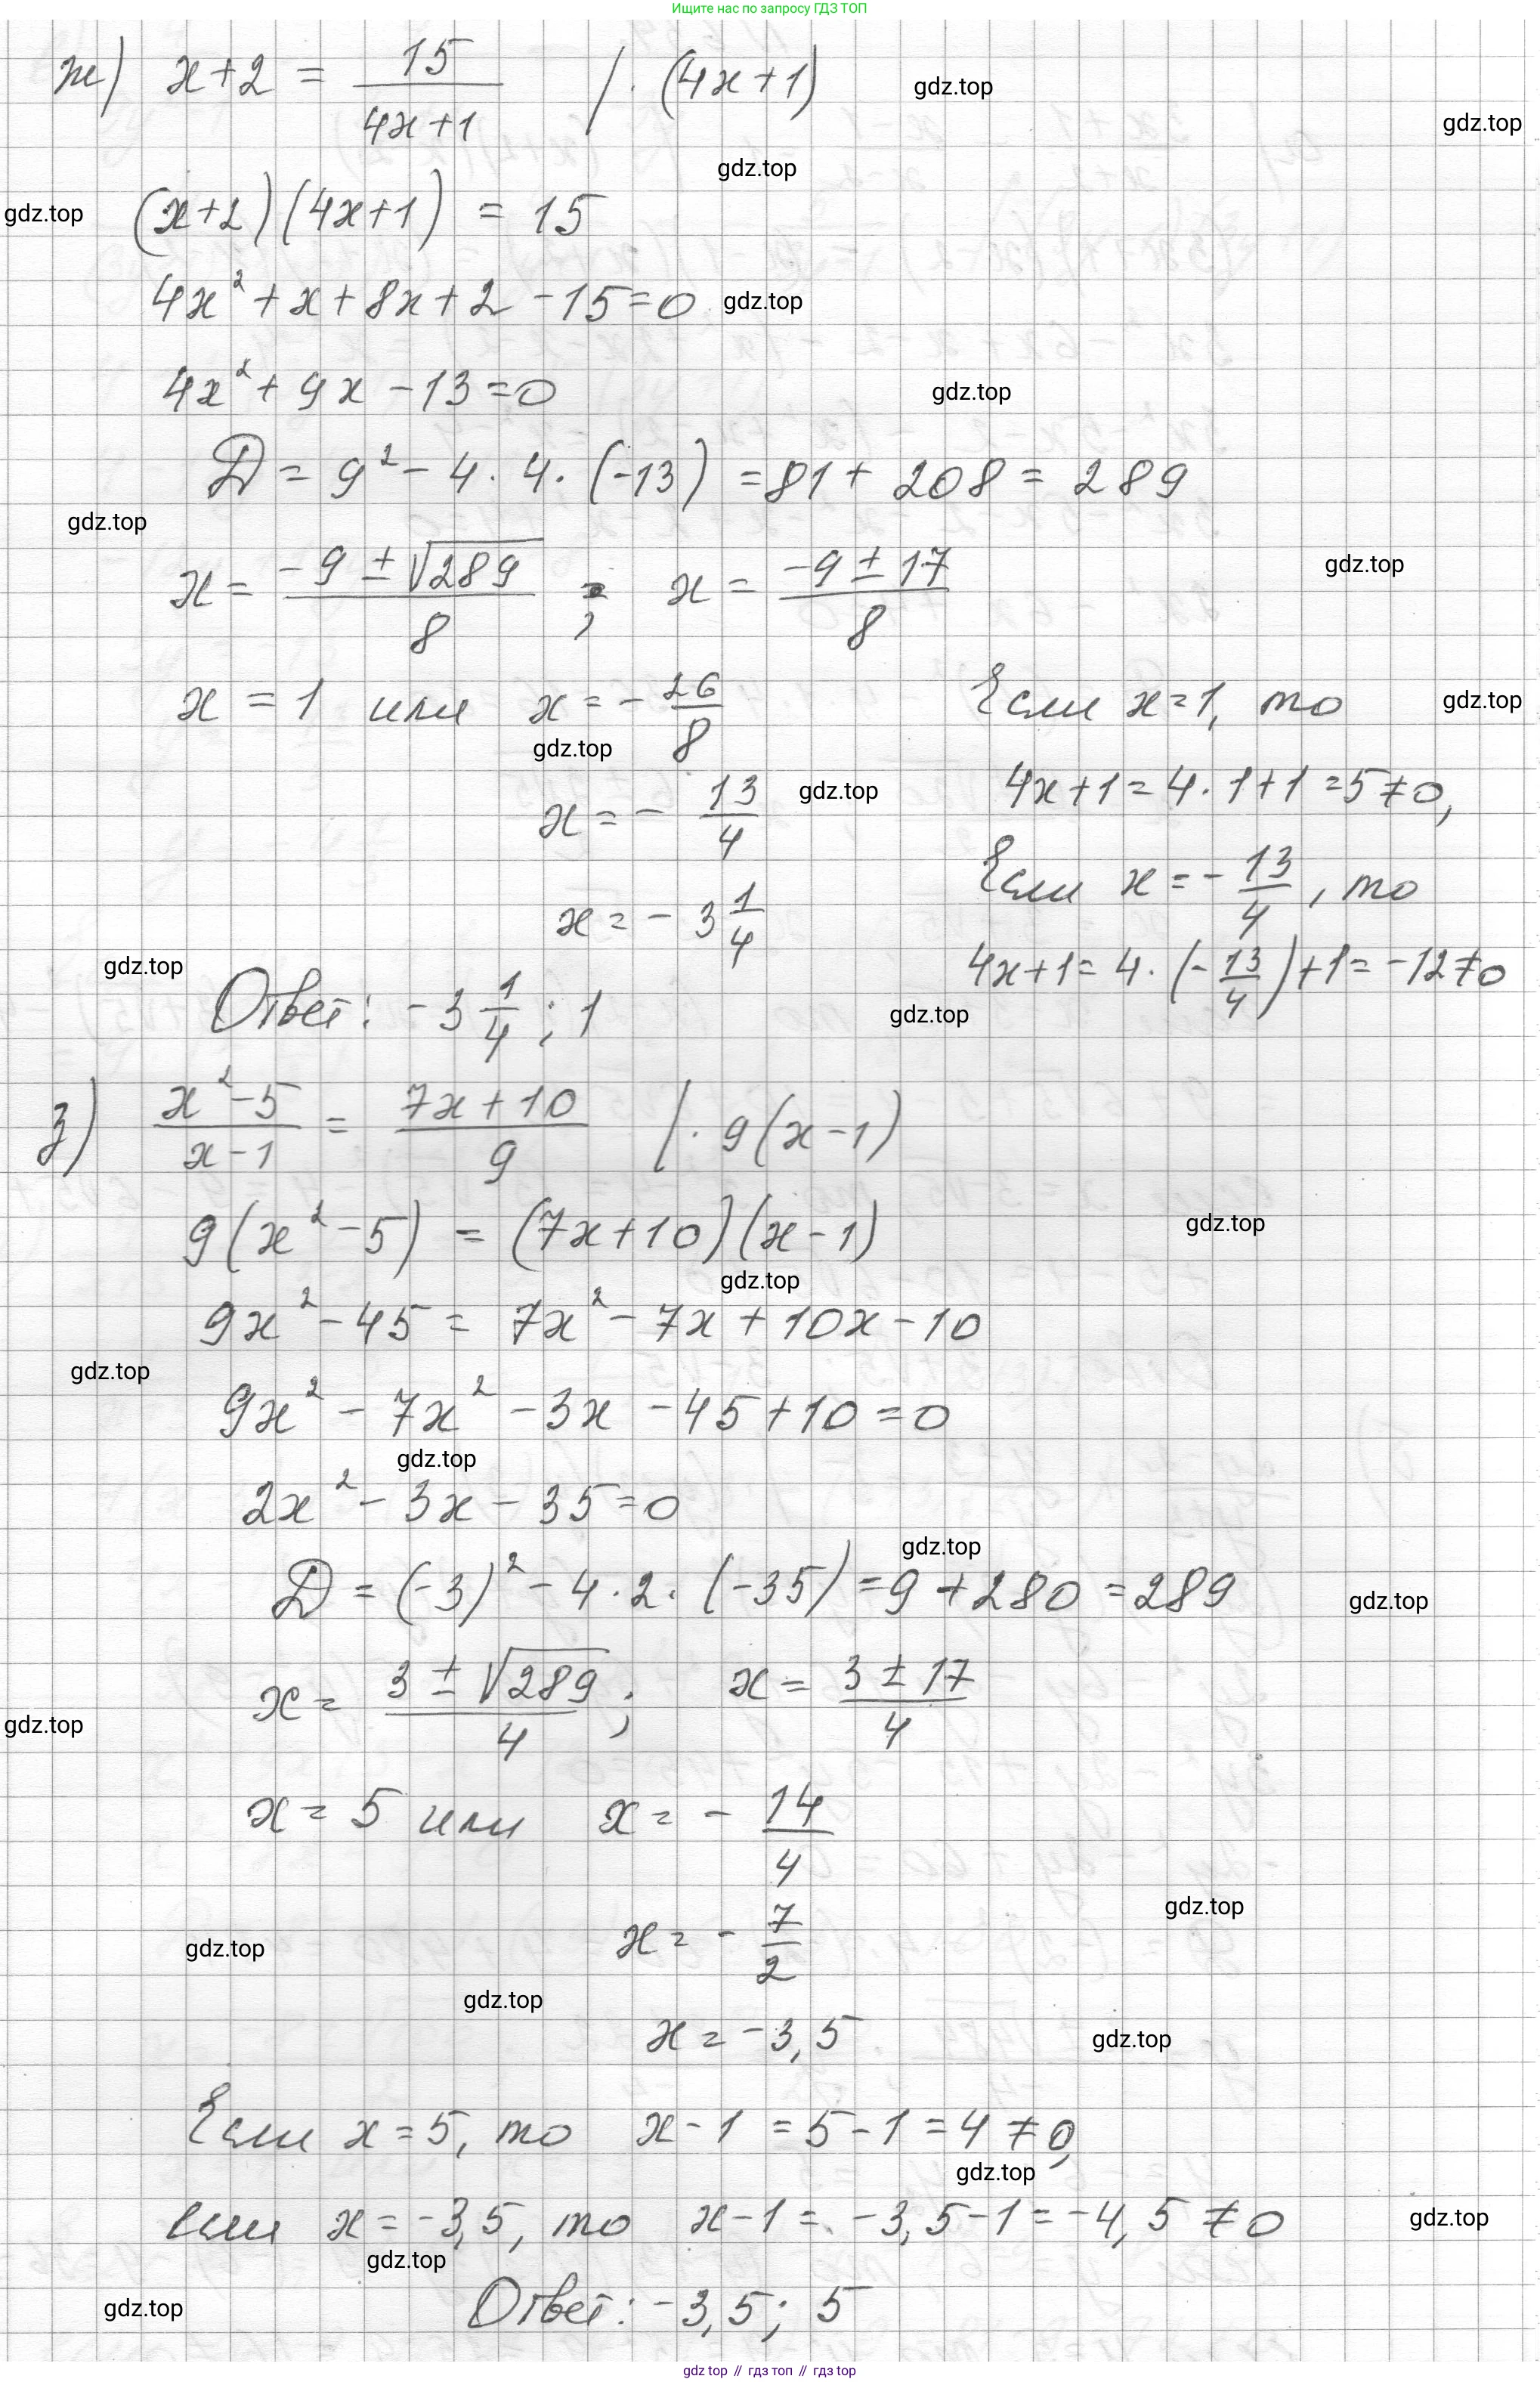 Ищите нас по запросу ГДЗ ТОП
ж) x+2 = 15/(4x+1) / · (4x+1)
gdz.top
gdz.top
gdz.top
gdz.top
(x+2)(4x+1) = 15
4x² + x + 8x + 2 - 15 = 0
gdz.top
4x² + 9x - 13 = 0
gdz.top
D = 9² - 4 · 4 · (-13) = 81 + 208 = 289
gdz.top
gdz.top
x = (-9 ± √289)/8 ; x = (-9 ± 17)/8
x = 1 или x = - 26/8
gdz.top
gdz.top
x = - 13/4
gdz.top
x = - 3 1/4
Если x = 1, то
4x+1 = 4 · 1 + 1 = 5 ≠ 0,
Если x = - 13/4, то
4x+1 = 4 · (- 13/4) + 1 = -12 ≠ 0
gdz.top
gdz.top
Ответ: -3 1/4 ; 1
з) (x² - 5)/(x - 1) = (7x + 10)/9 / · 9(x - 1)
9(x² - 5) = (7x + 10)(x - 1)
gdz.top
gdz.top
9x² - 45 = 7x² - 7x + 10x - 10
gdz.top
9x² - 7x² - 3x - 45 + 10 = 0
gdz.top
2x² - 3x - 35 = 0
gdz.top
D = (-3)² - 4 · 2 · (-35) = 9 + 280 = 289
gdz.top
x = (3 ± √289)/4 ; x = (3 ± 17)/4
gdz.top
x = 5 или x = - 14/4
gdz.top
x = - 7/2
gdz.top
gdz.top
x = -3,5
gdz.top
Если x = 5, то x - 1 = 5 - 1 = 4 ≠ 0,
gdz.top
если x = -3,5, то x - 1 = -3,5 - 1 = -4,5 ≠ 0
gdz.top
gdz.top
gdz.top
Ответ: -3,5 ; 5
gdz top // гдз топ // гдз top